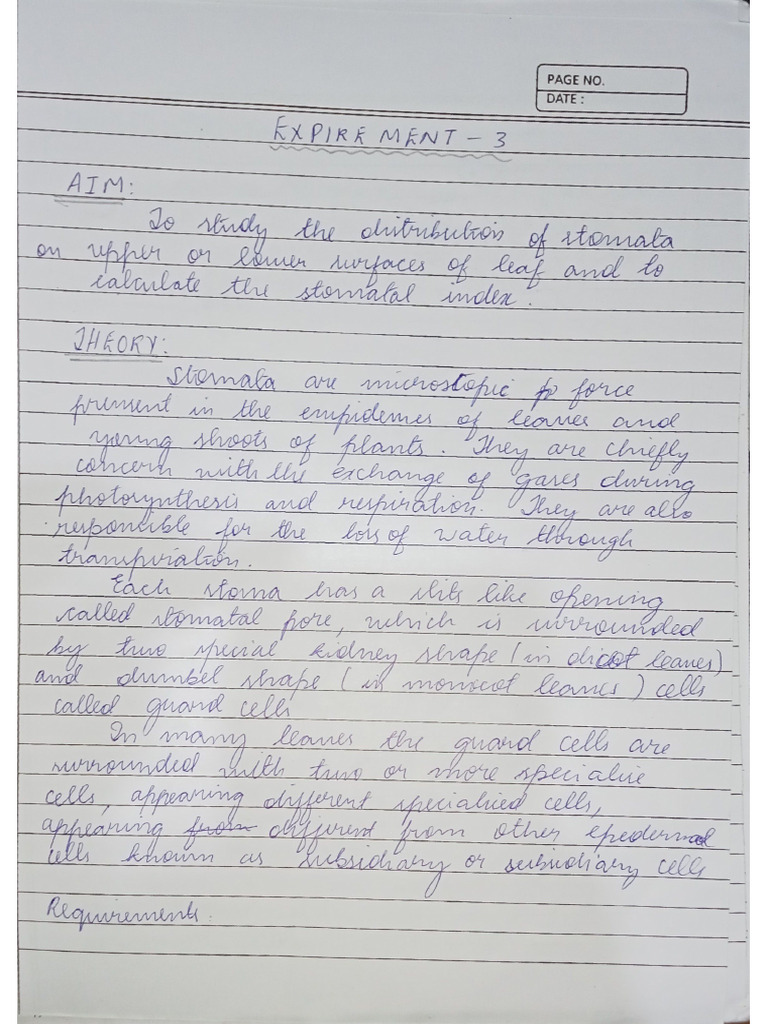 PAGE NO.
DATE :
EXPIREMENT - 3
AIM:
To study the distribution of stomata
on upper or lower surfaces of leaf and to
calculate the stomatal index.
THEORY:
Stomata are microstopic force
present in the empidemes of leaves and
young shoots of plants. They are chiefly
concern with the exchange of gases during
photosynthesis and respiration. They are also
responsible for the loss of water through
transpiration.
Each stoma has a slits like opening
called stomatal pore, which is surrounded
by two special kidney shape (in dicot leaves)
and dumbel shape (in monocot leaves) cells
called guard cells
In many leaves the guard cells are
surrounded with two or more specialise
cells, appearing different specialised cells,
appearing from different from other epedermal
cells known as subsidiary or subsidiary cells
Requirements: